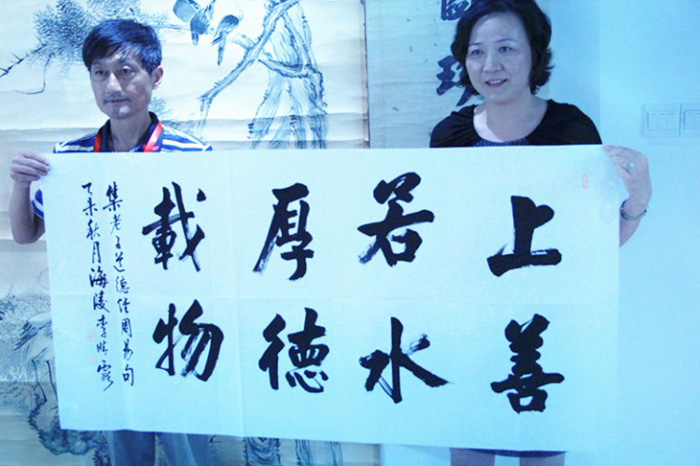 上善
若水
厚德
載物
集老子道德經周易句
乙未秋月海陵李